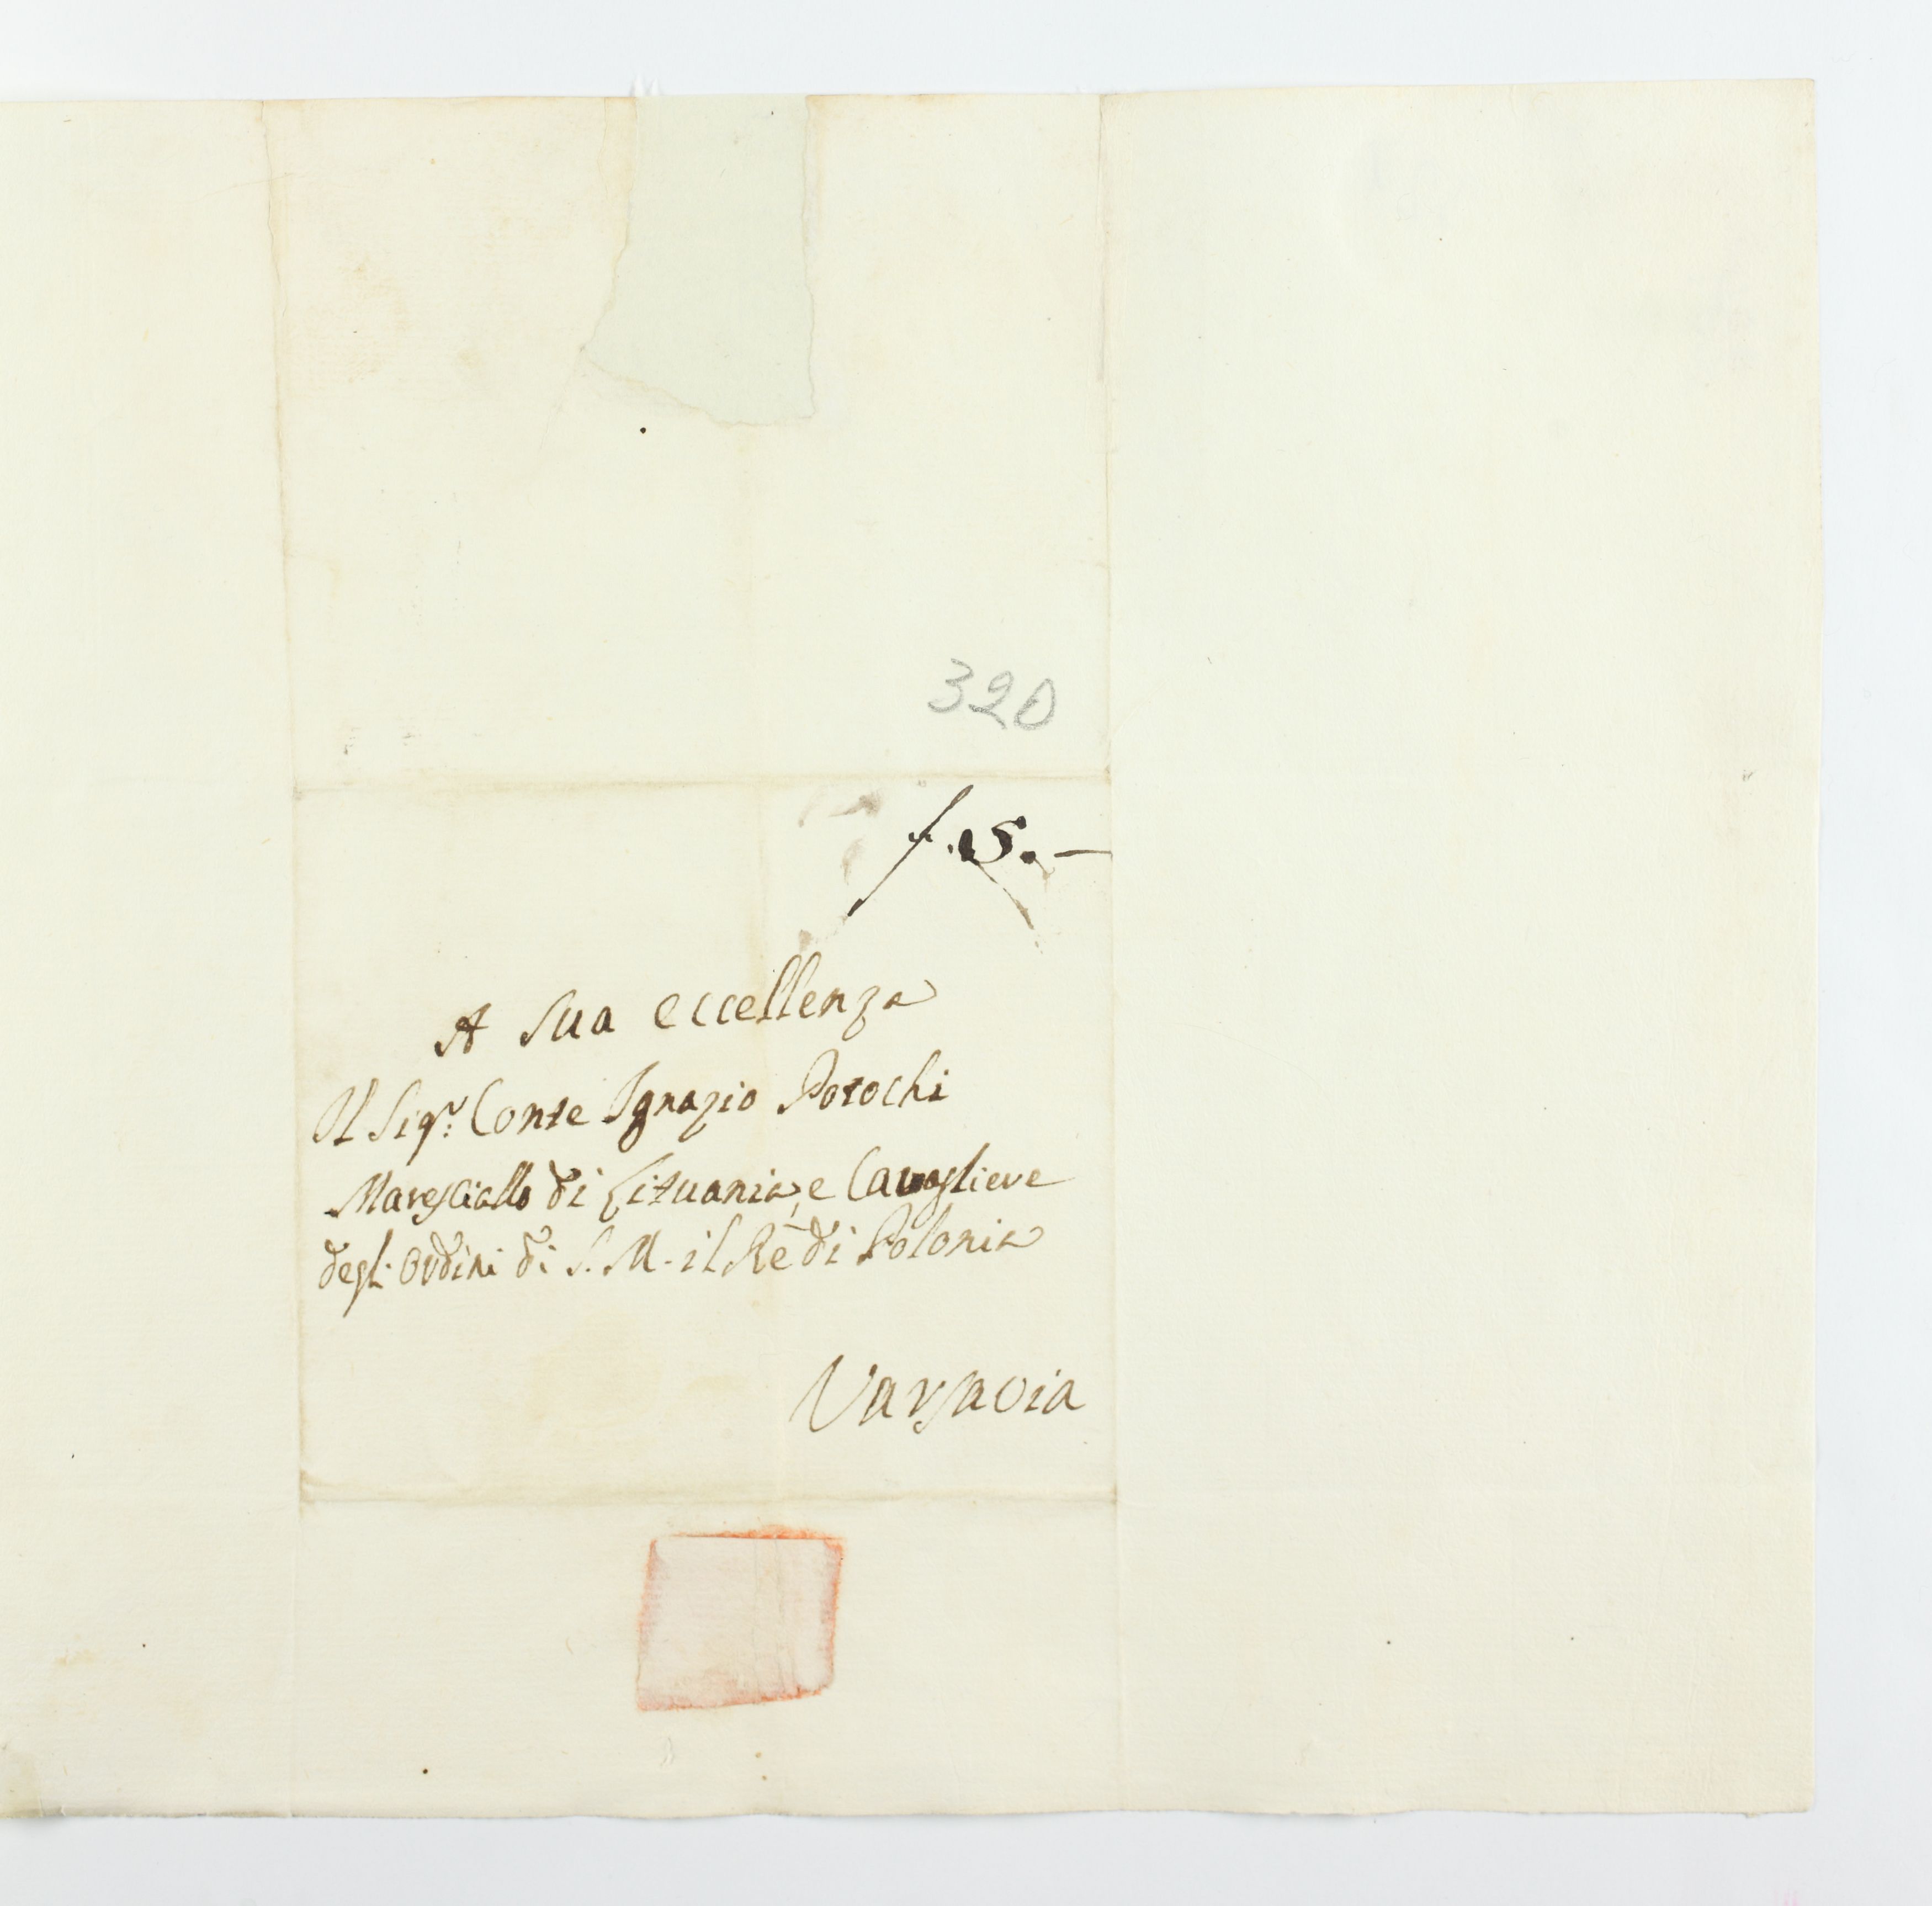 320
f. 5. —
A Sua eccellenza
Il Sigr: Conte Ignazio Potochi
Maresciallo di Lituania, e Cavagliere
degli Ordini di S. M. il Rè di Polonia
Varsavia